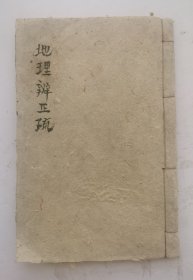 地理辨正疏